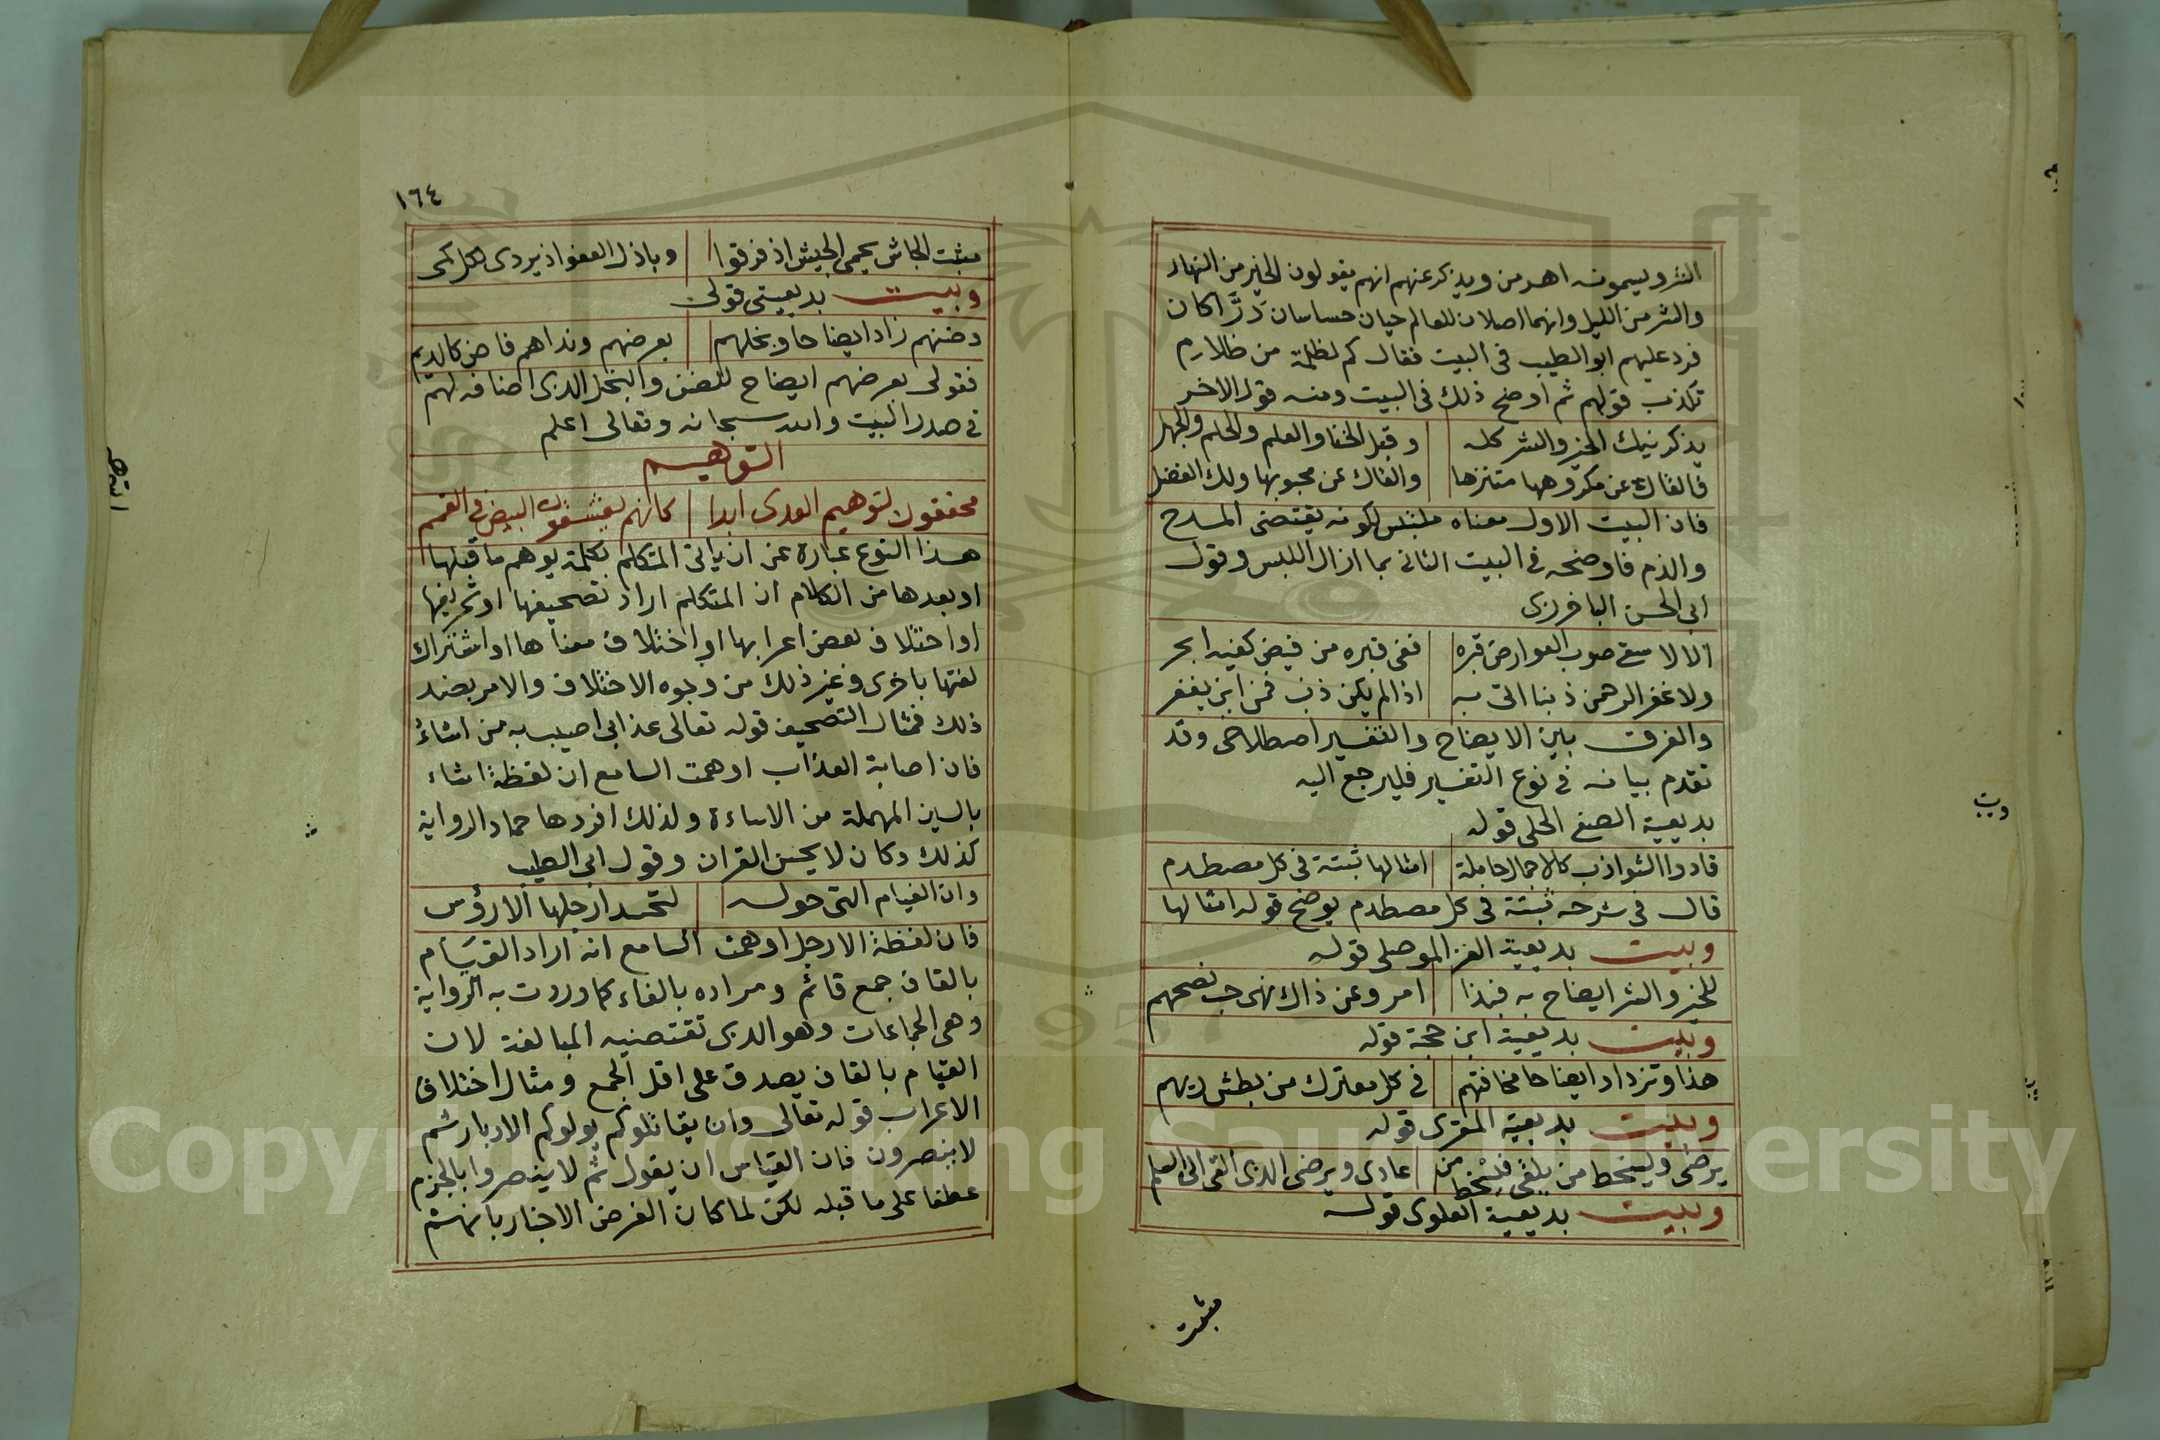 الشر ويسمونه اهرمن ويذكر عنهم انهم يقولون الخير من النهار
والشر من الليل وانهما اصلان للعالم حيان حساسان درّاكان
فرد عليهم ابو الطيب فى البيت فقال كم لظلمة من ظلام
تكذب قولهم ثم اوضح ذلك فى البيت ومنه قول الاخر
يذكرنيك الخير والشر كله وقيل الخنا والعلم والحلم والجهل
فالقاك عن مكروهها متنزها والقاك عن محبوبها ولك الفضل
فان البيت الاول معناه ملتبس لكونه يقتضى المدح
والذم فاوضحه فى البيت الثانى بما ازال اللبس وقول
ابى الحسن الباخرزى
الا لا سقى صوب العوارض قبره ففى قبره من فيض كفيه ابحر
ولا غفر الرحمن ذنبا اتى به اذا لم يكن ذنب فمن اين يغفر
والفرق بين الايضاح والتفسير اصطلاحى وقد
تقدم بيانه فى نوع التفسير فليرجع اليه
بديعية الصفى الحلى قوله
قادوا الشوازب كالاجبال حاملة امثالها ثبتة فى كل مصطدم
قال فى شرحه ثبتة فى كل مصطدم يوضح قوله امثالها
وبيت بديعية العز الموصلى قوله
للخير والشر ايضاح به فبذا امر وعن ذاك نهى حب نصحهم
وبيت بديعية ابن حجة قوله
هذا وتزداد ايضاحا مخافتهم فى كل معترك من بطش ربهم
وبيت بديعية المقرى قوله
يرضى ويسخط من يلقى فيسخط من عادى ويرضى الذى القى الى السلم
وبيت بديعية العلوى قوله
مثبت
١٦٤
مثبت الجاش يحمى الجيش اذ فرقوا وباذل العفو اذ يردى لكل كمى
وبيت بديعيتى قولى
وضنهم زاد ايضاحا وبخلهم بعرضهم ونداهم فاض كالديم
فقولى بعرضهم ايضاح للضن والبخل الذى اضافه لهم
فى صدر البيت والله سبحانه وتعالى اعلم
التوهيم
محققون لتوهيم العدى ابدا كانهم يعشقون البيض فى القمم
هذا النوع عبارة عن ان ياتى المتكلم بكلمة يوهم ما قبلها
او بعدها من الكلام ان المتكلم اراد تصحيفها او تحريفها
او اختلاف بعض اعرابها او اختلاف معناها او اشتراك
لغتها باخرى وغير ذلك من وجوه الاختلاف والامر بضد
ذلك فمثال التصحيف قوله تعالى عذابى اصيب به من اشاء
فان اصابة العذاب اوهمت السامع ان لفظة اشاء
بالسين المهملة من الاساءة ولذلك افردها حماد الرواية
كذلك وكان لا يحسن القران وقول ابى الطيب
وان الفيام التى حوله لتحسد ارجلها الارؤس
فان لفظة الارجل اوهمت السامع انه اراد القيام
بالقاف جمع قائم ومراده بالفاء كما وردت به الرواية
وهى الجماعات وهو الذى تقتضيه المبالغة لان
القيام بالقاف يصدق على اقل الجمع ومثال اختلاف
الاعراب قوله تعالى وان يقاتلوكم يولوكم الادبار ثم
لا ينصرون فان القياس ان يقول ثم لا ينصروا بالجزم
عطفا على ما قبله لكن لما كان الغرض الاخبار بانهم
Copyright © King Saud University
1957